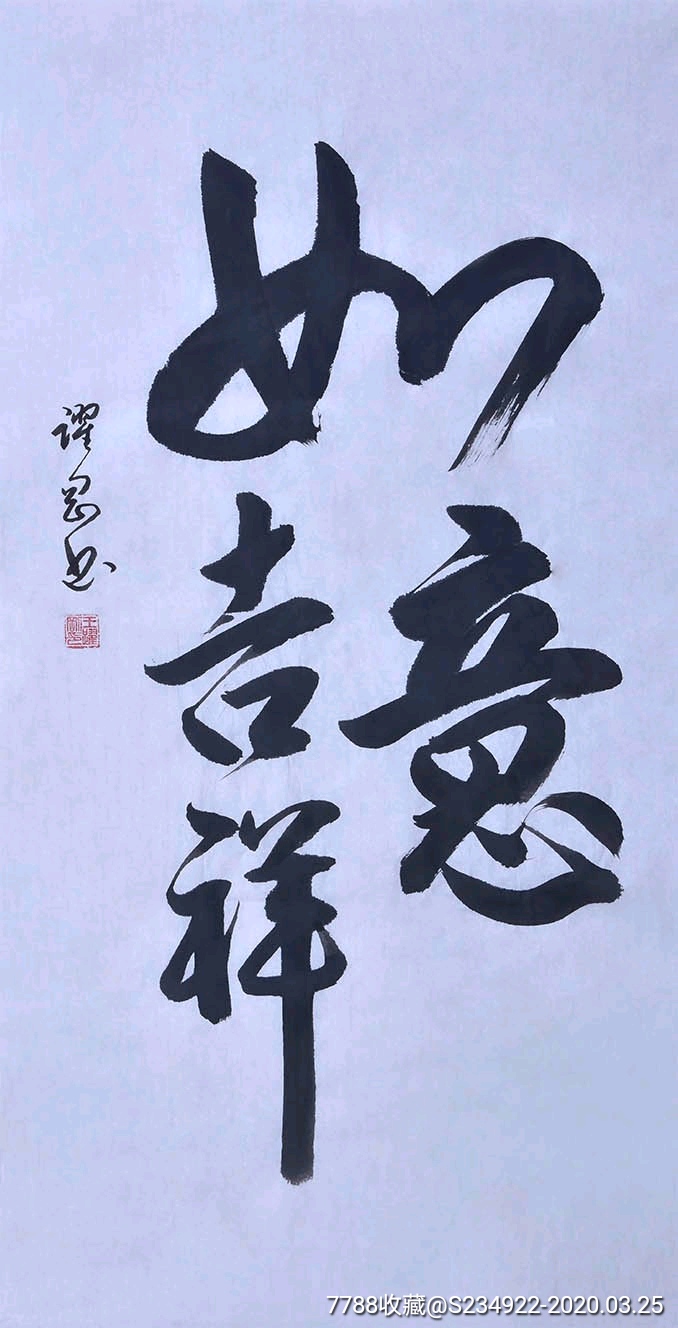 如意
吉祥
7788收藏@S234922-2020.03.25